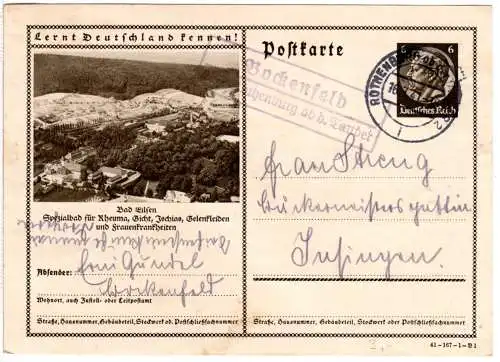 Lernt Deutschland kennen!
Postkarte
6 6
Deutsches Reich
ROTHENBURG
Bockenfeld
Rothenburg ob d. Tauber
Bad Eilsen
Spezialbad für Rheuma, Gicht, Ischias, Gelenkleiden
und Frauenkrankheiten
Absender:
Gundel
Bockenfeld
Wohnort, auch Zustell- oder Leitpostamt
Straße, Hausnummer, Gebäudeteil, Stockwerk od. Postschließfachnummer
Frau Streng
Bäckermeistersgattin
Insingen.
Straße, Hausnummer, Gebäudeteil, Stockwerk oder Postschließfachnummer
41-167-1-B1